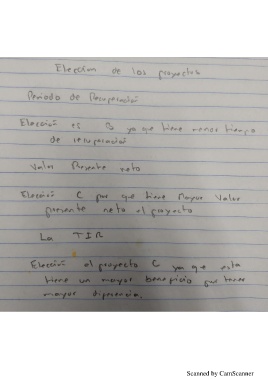 Elección de los proyectos
Periodo de Recuperación
Elección es ya que tiene menor tiempo
de recuperación
Valor Presente neto
Elección C por que tiene Mayor Valor
presente neto el proyecto
La TIR
Elección el proyecto C ya que esta
tiene un mayor beneficio por tener
mayor diferencia.
Scanned by CamScanner